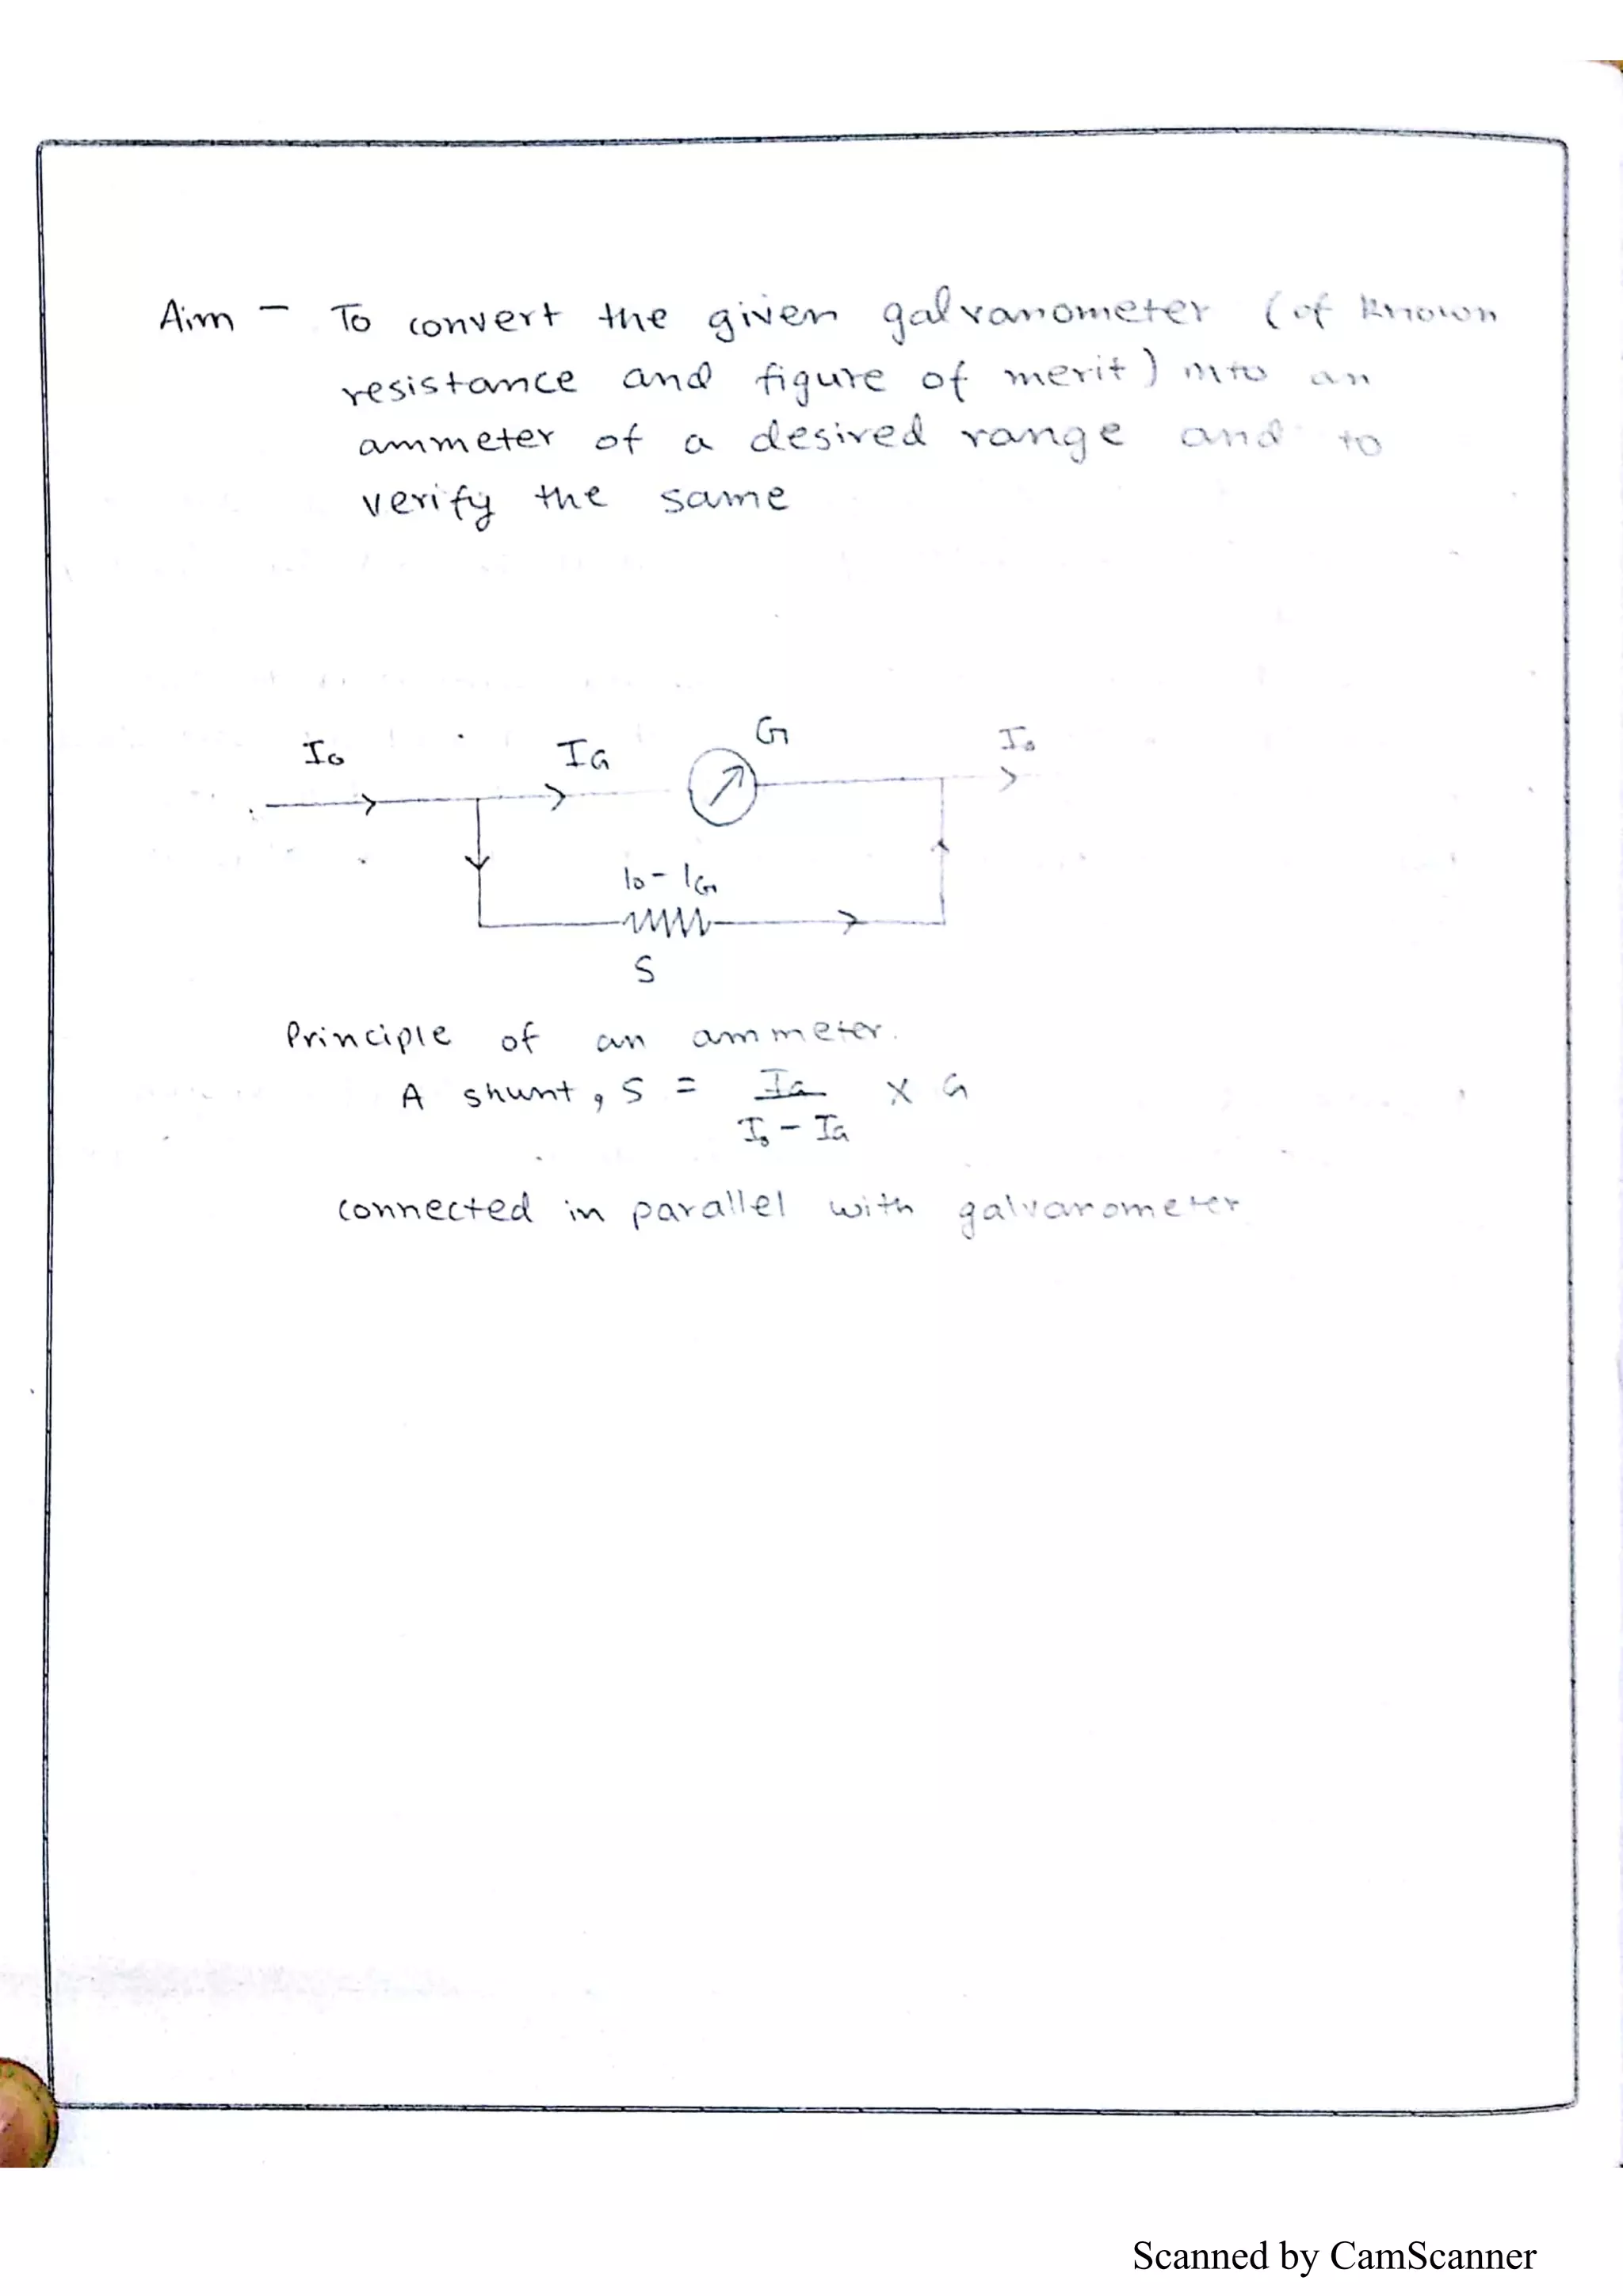 Aim - To convert the given galvanometer (of known
resistance and figure of merit) into an
ammeter of a desired range and to
verify the same
I₀ I_G G I₀
I₀ - I_G
S
Principle of an ammeter.
A shunt, S = I_G / (I₀ - I_G) × G
connected in parallel with galvanometer
Scanned by CamScanner